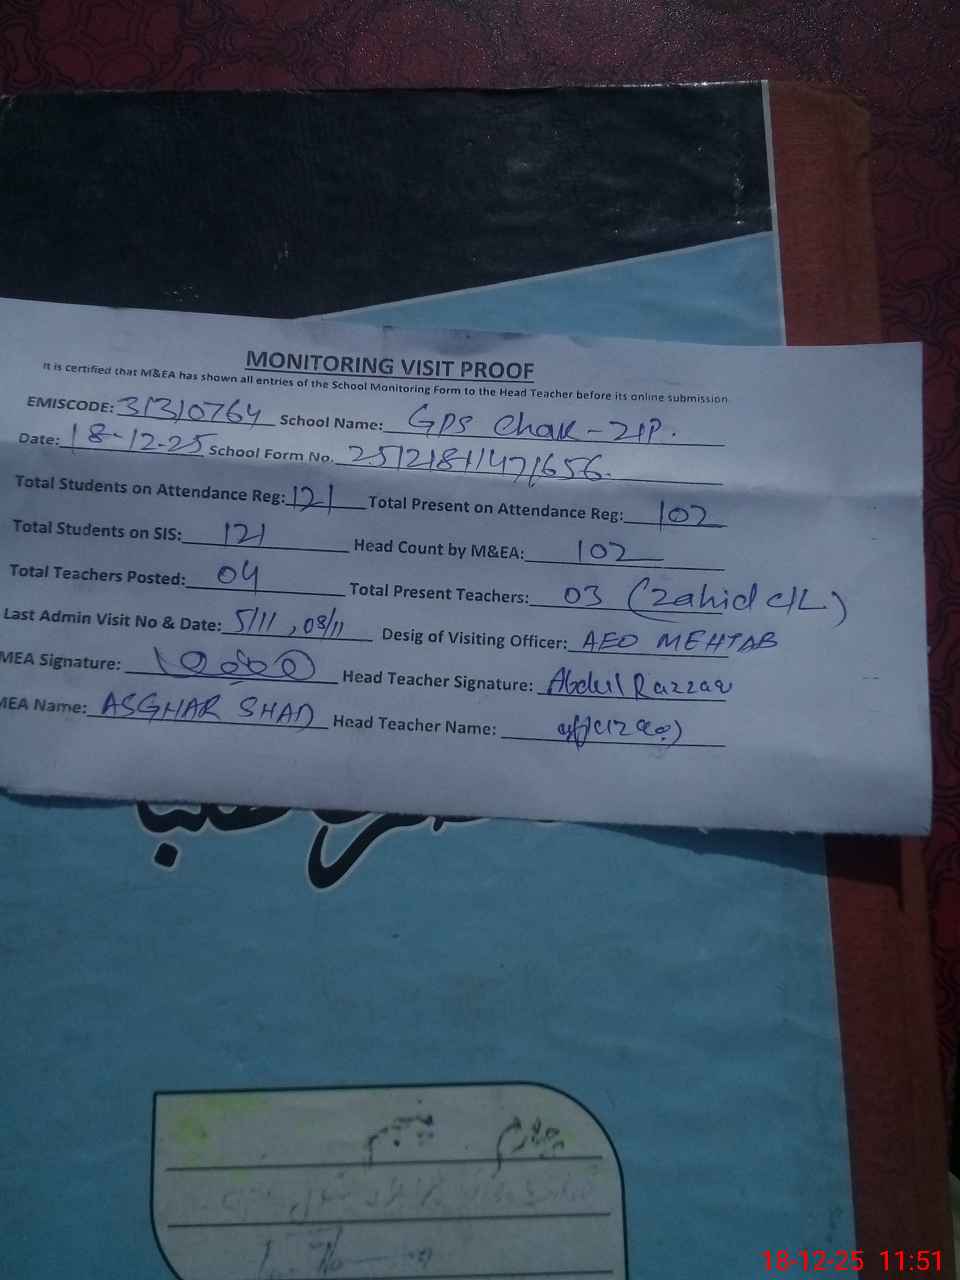 MONITORING VISIT PROOF
It is certified that M&EA has shown all entries of the School Monitoring Form to the Head Teacher before its online submission
EMISCODE: 31310764 School Name: GPS Chak-21P.
Date: 18-12-25 School Form No. 25121811471656.
Total Students on Attendance Reg: 121 Total Present on Attendance Reg: 102
Total Students on SIS: 121 Head Count by M&EA: 102
Total Teachers Posted: 04 Total Present Teachers: 03 (Zahid c/L)
Last Admin Visit No & Date: 5/11, 08/11 Desig of Visiting Officer: AEO MEHTAB
MEA Signature: Head Teacher Signature: Abdul Razzaq
MEA Name: ASGHAR SHAD Head Teacher Name:
18-12-25 11:51